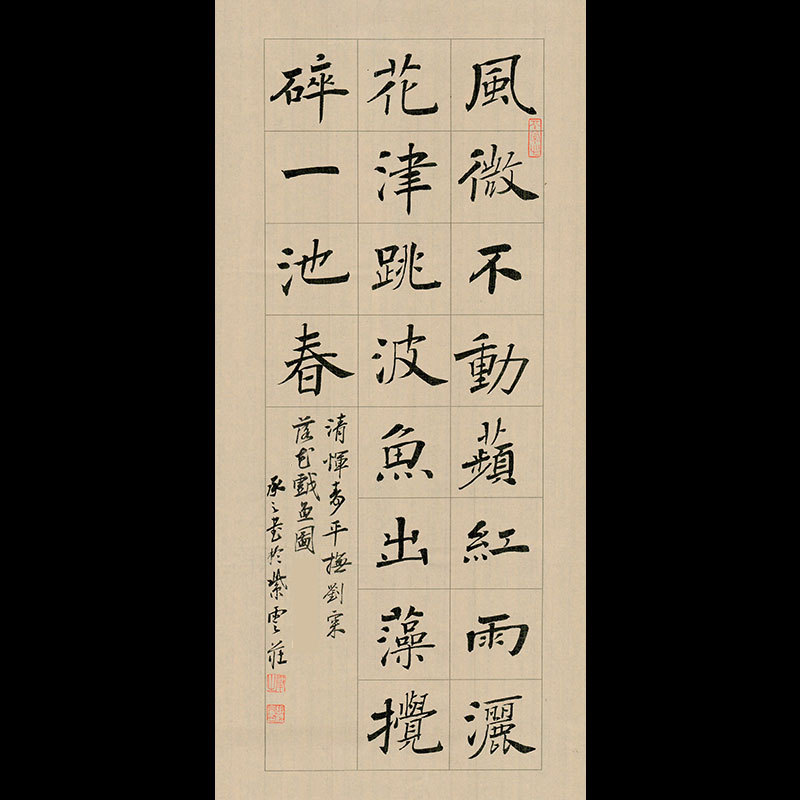 風微不動蘋紅雨灑
花津跳波魚出藻攪
碎一池春
清惲壽平撫劉寀
落花戲魚圖
承之書於紫雲莊